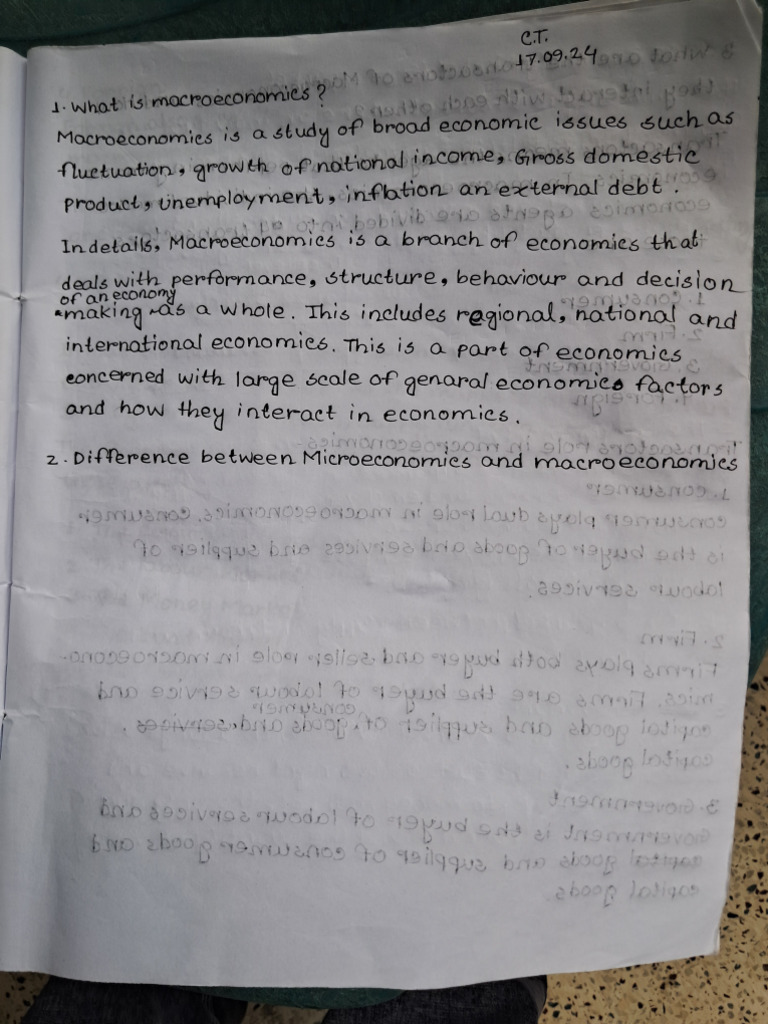 C.T.
17.09.24
1. What is macroeconomics?
Macroeconomics is a study of broad economic issues such as
fluctuation, growth of national income, Gross domestic
product, unemployment, inflation an external debt.
In details, Macroeconomics is a branch of economics that
deals with performance, structure, behaviour and decision
of an economy
making as a whole. This includes regional, national and
international economics. This is a part of economics
concerned with large scale of genaral economics factors
and how they interact in economics.
2. Difference between Microeconomics and macroeconomics